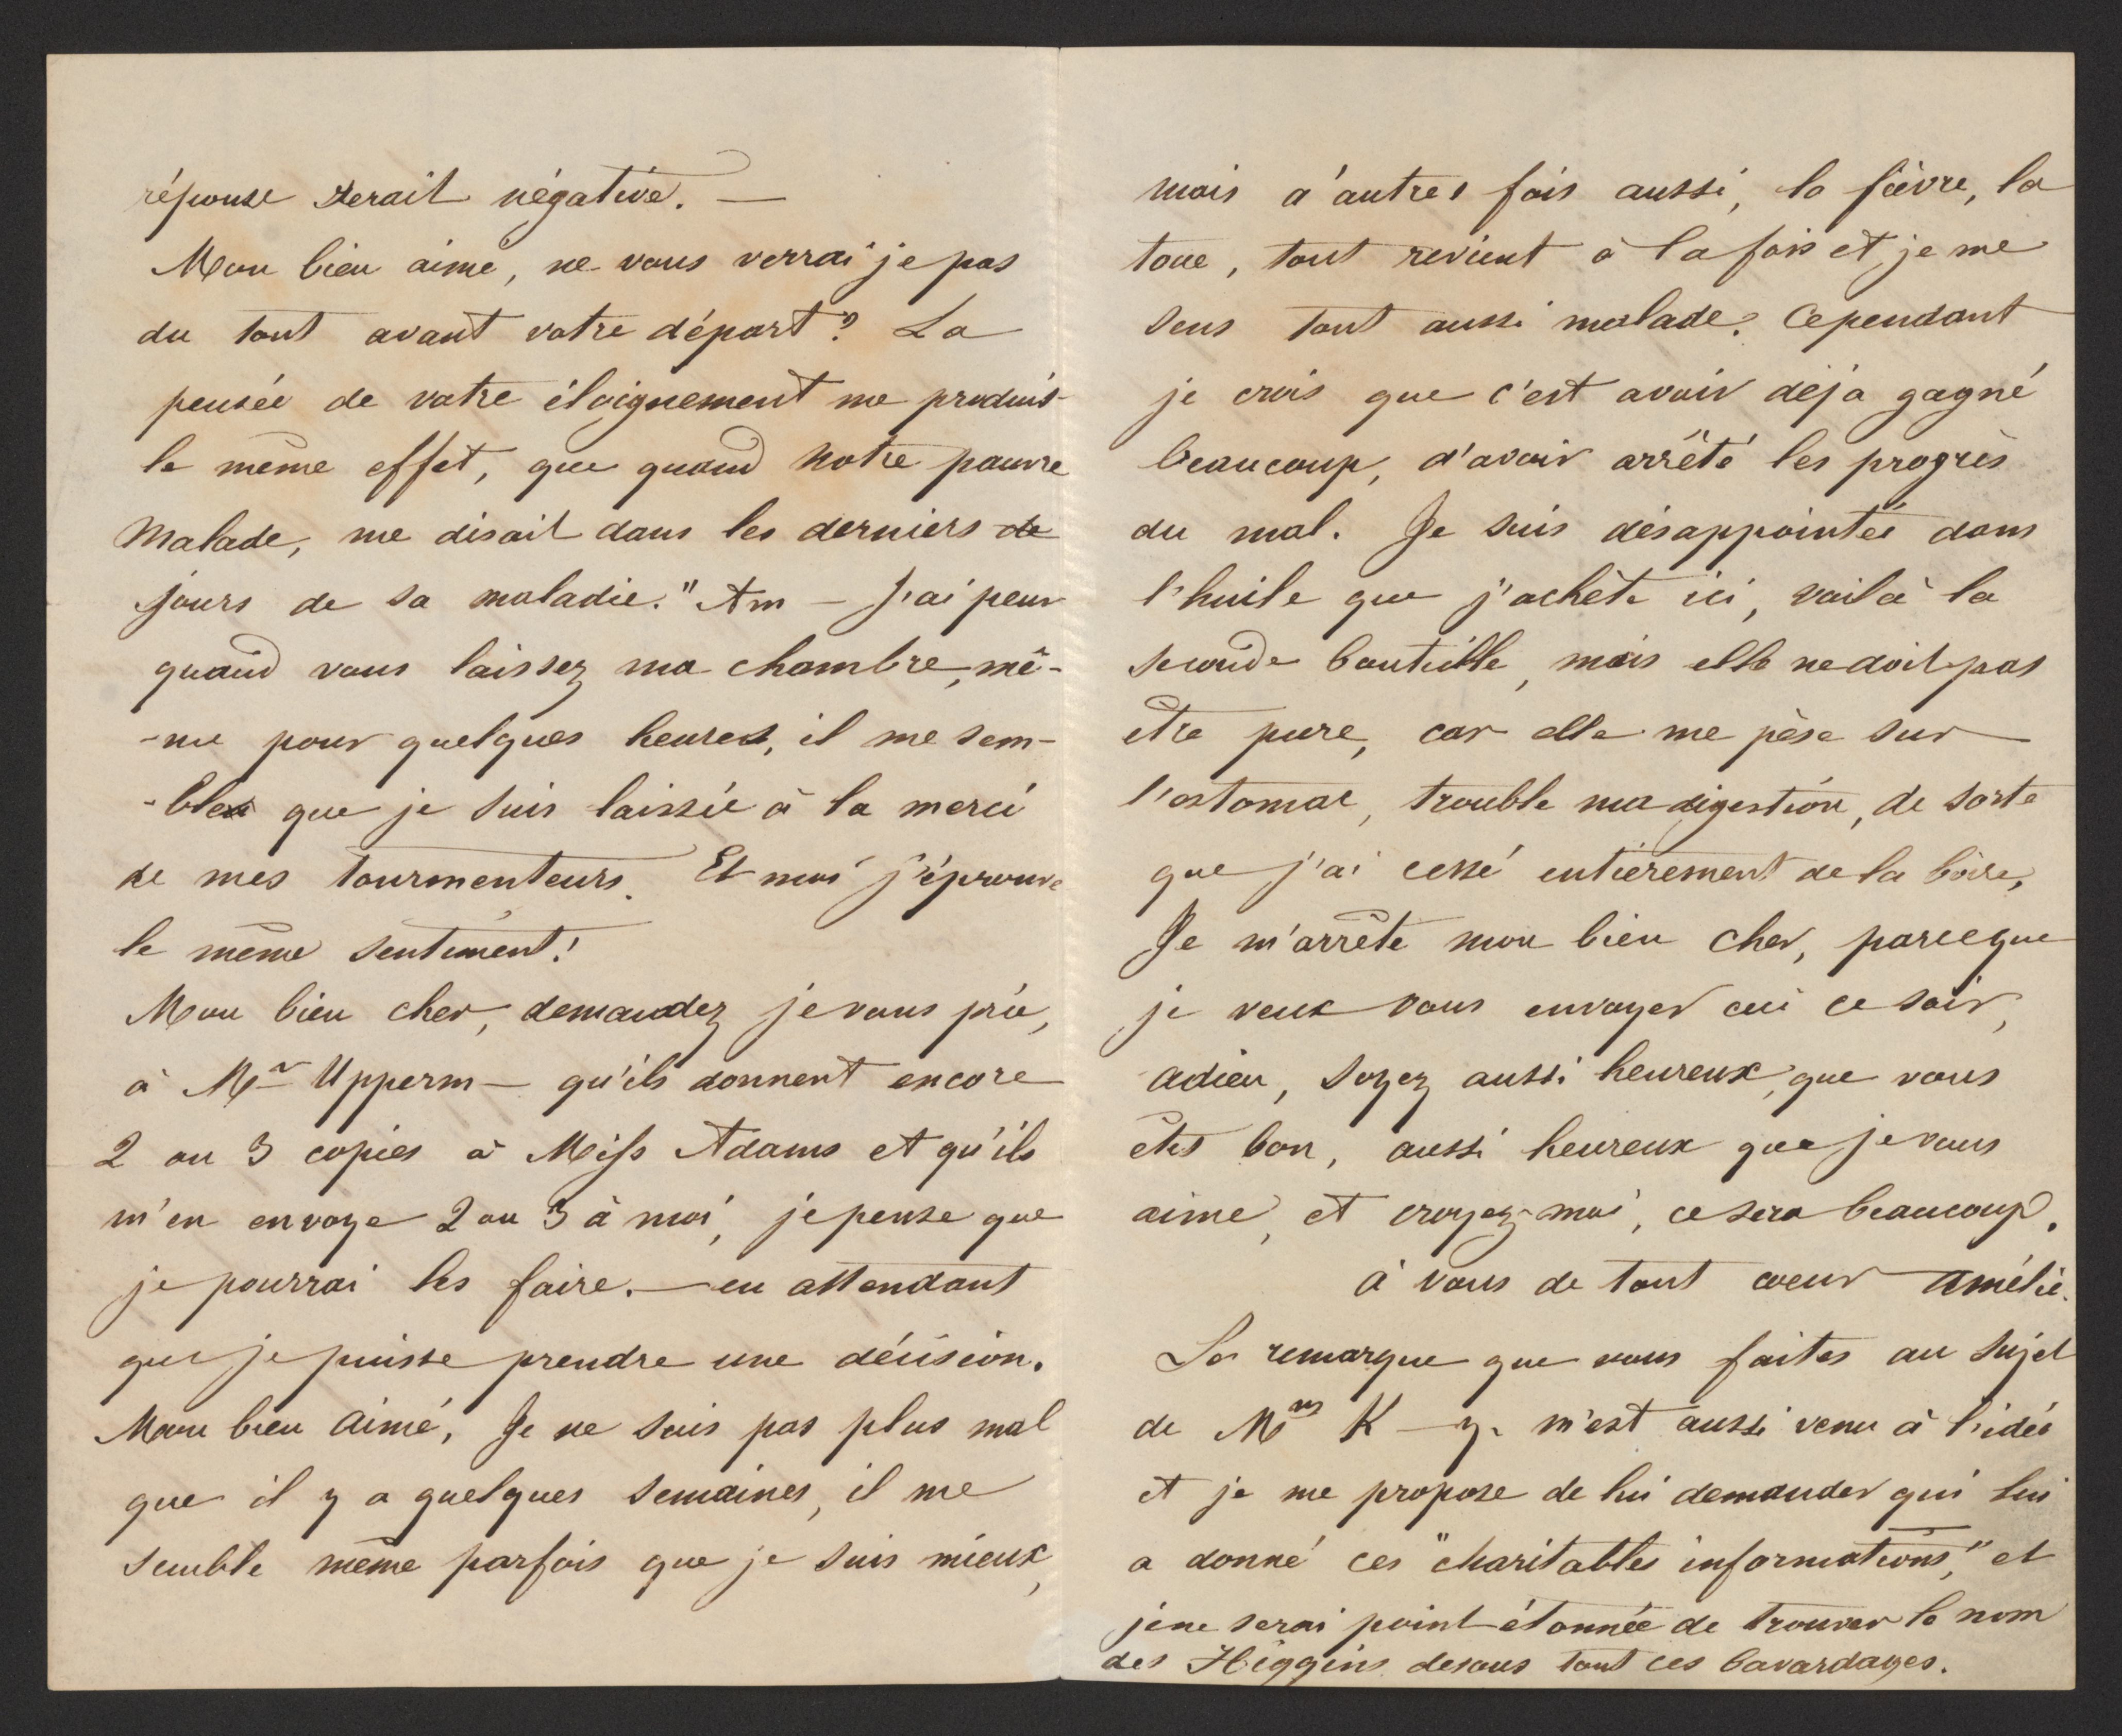 réponse serait négative. —
Mon bien aimé, ne vous verrai je pas
du tout avant votre départ? La
pensée de votre éloignement me produis-
le même effet, que quand notre pauvre
Malade, me disait dans les derniers de
jours de sa maladie. "Am — J'ai peur
quand vous laissez ma chambre, mê-
-me pour quelques heures, il me sem-
-ble que je suis laissée à la merci
de mes tourmenteurs. Et moi j'éprouve
le même sentiment!
Mon bien cher, demandez je vous prie,
à Mr Upperm — qu'ils donnent encore
2 ou 3 copies à Miss Adams et qu'ils
m'en envoye 2 ou 3 à moi, je pense que
je pourrai les faire. — en attendant
que je puisse prendre une décision.
Mon bien aimé, Je ne suis pas plus mal
que il y a quelques semaines, il me
semble même parfois que je suis mieux,
mais d'autres fois aussi, la fièvre, la
toue, tout revient à la fois et je me
sens tout aussi malade. Cependant
je crois que c'est avoir déja gagné
beaucoup, d'avoir arrêté les progrès
du mal. Je suis désappointée dans
l'huile que j'achète ici, voilà la
seconde bouteille, mais elle ne doit pas
être pure, car elle me pèse sur
l'estomac, trouble ma digestion, de sorte
que j'ai cessé entièrement de la boire,
Je m'arrête mon bien cher, parceque
je veux vous envoyer ceci ce soir,
adieu, soyez aussi heureux, que vous
êtes bon, aussi heureux que je vous
aime, et croyez-moi, ce sera beaucoup.
à vous de tout coeur Amélie.
La remarque que vous faites au sujet
de Mrs K — y. m'est aussi venu à l'idée
et je me propose de lui demander qui lui
a donné ces "charitables informations," et
je ne serai point étonnée de trouver le nom
des Higgins desous tout ces bavardages.